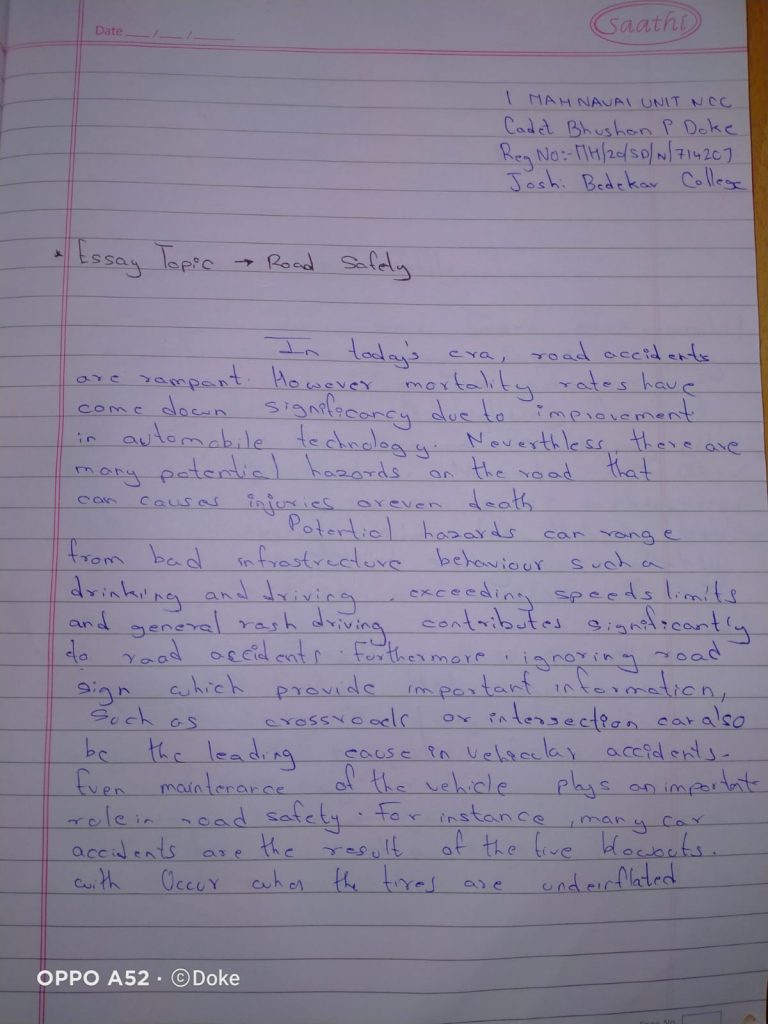 Date __/__/____
Saathi
1 MAH NAVAL UNIT NCC
Cadet Bhushan P Doke
Reg No:- MH/20/SD/N/714207
Joshi Bedekar College
* Essay Topic → Road Safety
In today's era, road accidents
are rampant. However mortality rates have
come down significancy due to improvement
in automobile technology. Nevertheless, there are
many potential hazards on the road that
can causes injuries or even death
Potential hazards can range
from bad infrastructure behaviour such a
drinking and driving, exceeding speeds limits
and general rash driving contributes significantly
to road accidents. Furthermore, ignoring road
sign which provide important information,
Such as crossroads or intersection can also
be the leading cause in vehicular accidents.
Even maintenance of the vehicle plays an important
role in road safety. For instance, many car
accidents are the result of the tire blowouts.
with Occur when the tires are underinflated
OPPO A52 · ©Doke